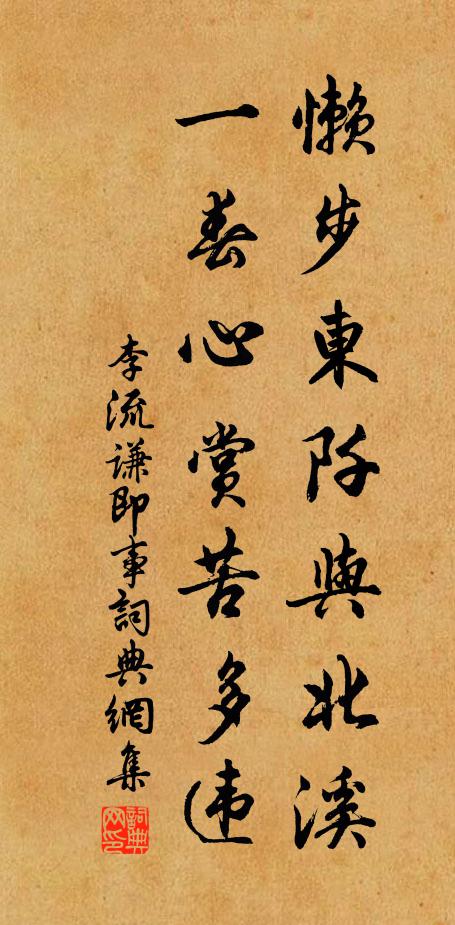 懒步東阡與北溪
一春心賞苦多违
李流謙即事詞典網集
詞典網印